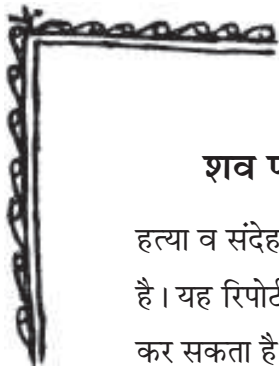 शव
हत्या व संदेह
है। यह रिपोर्ट
कर सकता है